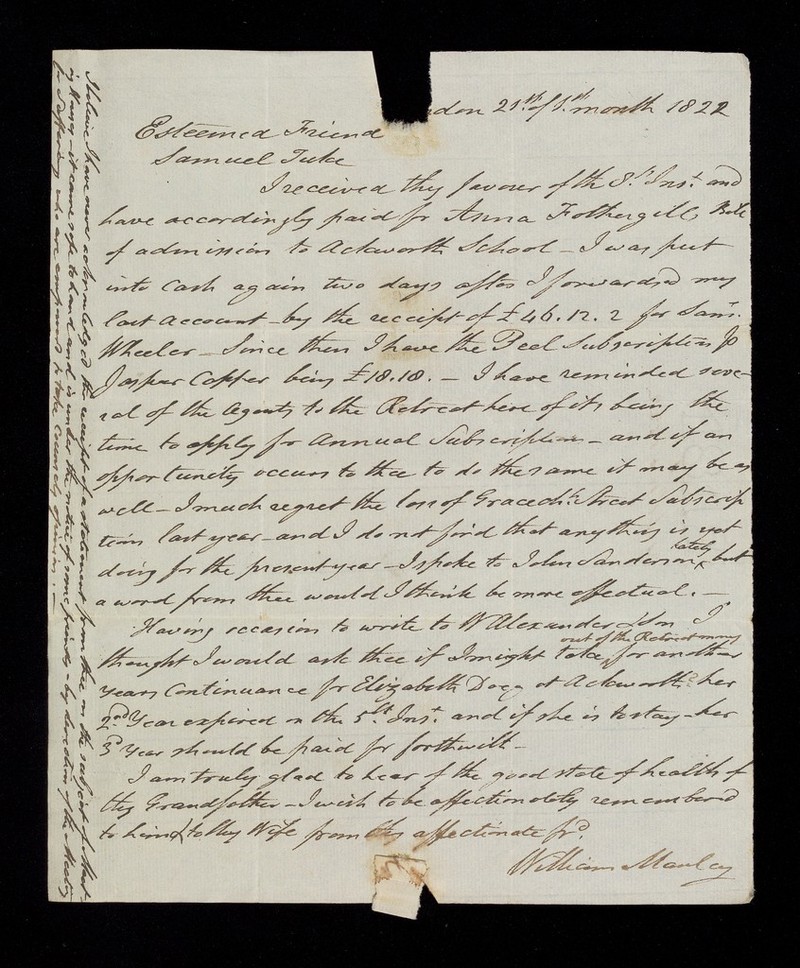 don 21st of 1st month 1822
Esteemed Friend
Samuel Tuke
I received thy favour of the 8th Inst. and
have accordingly paid for Anna Fothergill's Bill
of admission to Ackworth School – I was put
into Cash again two days after I forwarded my
last account – by the receipt of £46.12.2 for Saml.
Wheeler – Since then I have the Peel Subscription p
Jasper Capper being £18.18. – I have reminded seve-
ral of the Agents to the Retreat here of its being the
time to apply for Annual Subscription – and if an
opportunity occurs to thee to do the same it may be as
well – I much regret the loss of Gracech. Street Subscrip
tion last year – and I do not find that any thing is yet
doing for the present year – I spoke to John Sanderson lately, but
a word from thee would I think be more effectual. –
Having occasion to write to W Alexander & Son I
thought I would ask thee if I might take out of the Retreat money for another
Years Continuance for Elizabeth Doeg at Ackworth? her
2nd Year expired on the 5th Inst. and if she is to stay – her
3d Year should be paid for forthwith –
I am truly glad to hear of the good state of health of
thy Grandfather – I wish to be affectionately remembered
to him & to thy Wife from thy affectionate frd.
William Manley
I believe I have never acknowledged the receipt of a statement from thee on the subject of
it came safe to hand and is under the notice of some friends – by direction of the Meeting
for Sufferings who are empowered to take Counsel's opinion. –